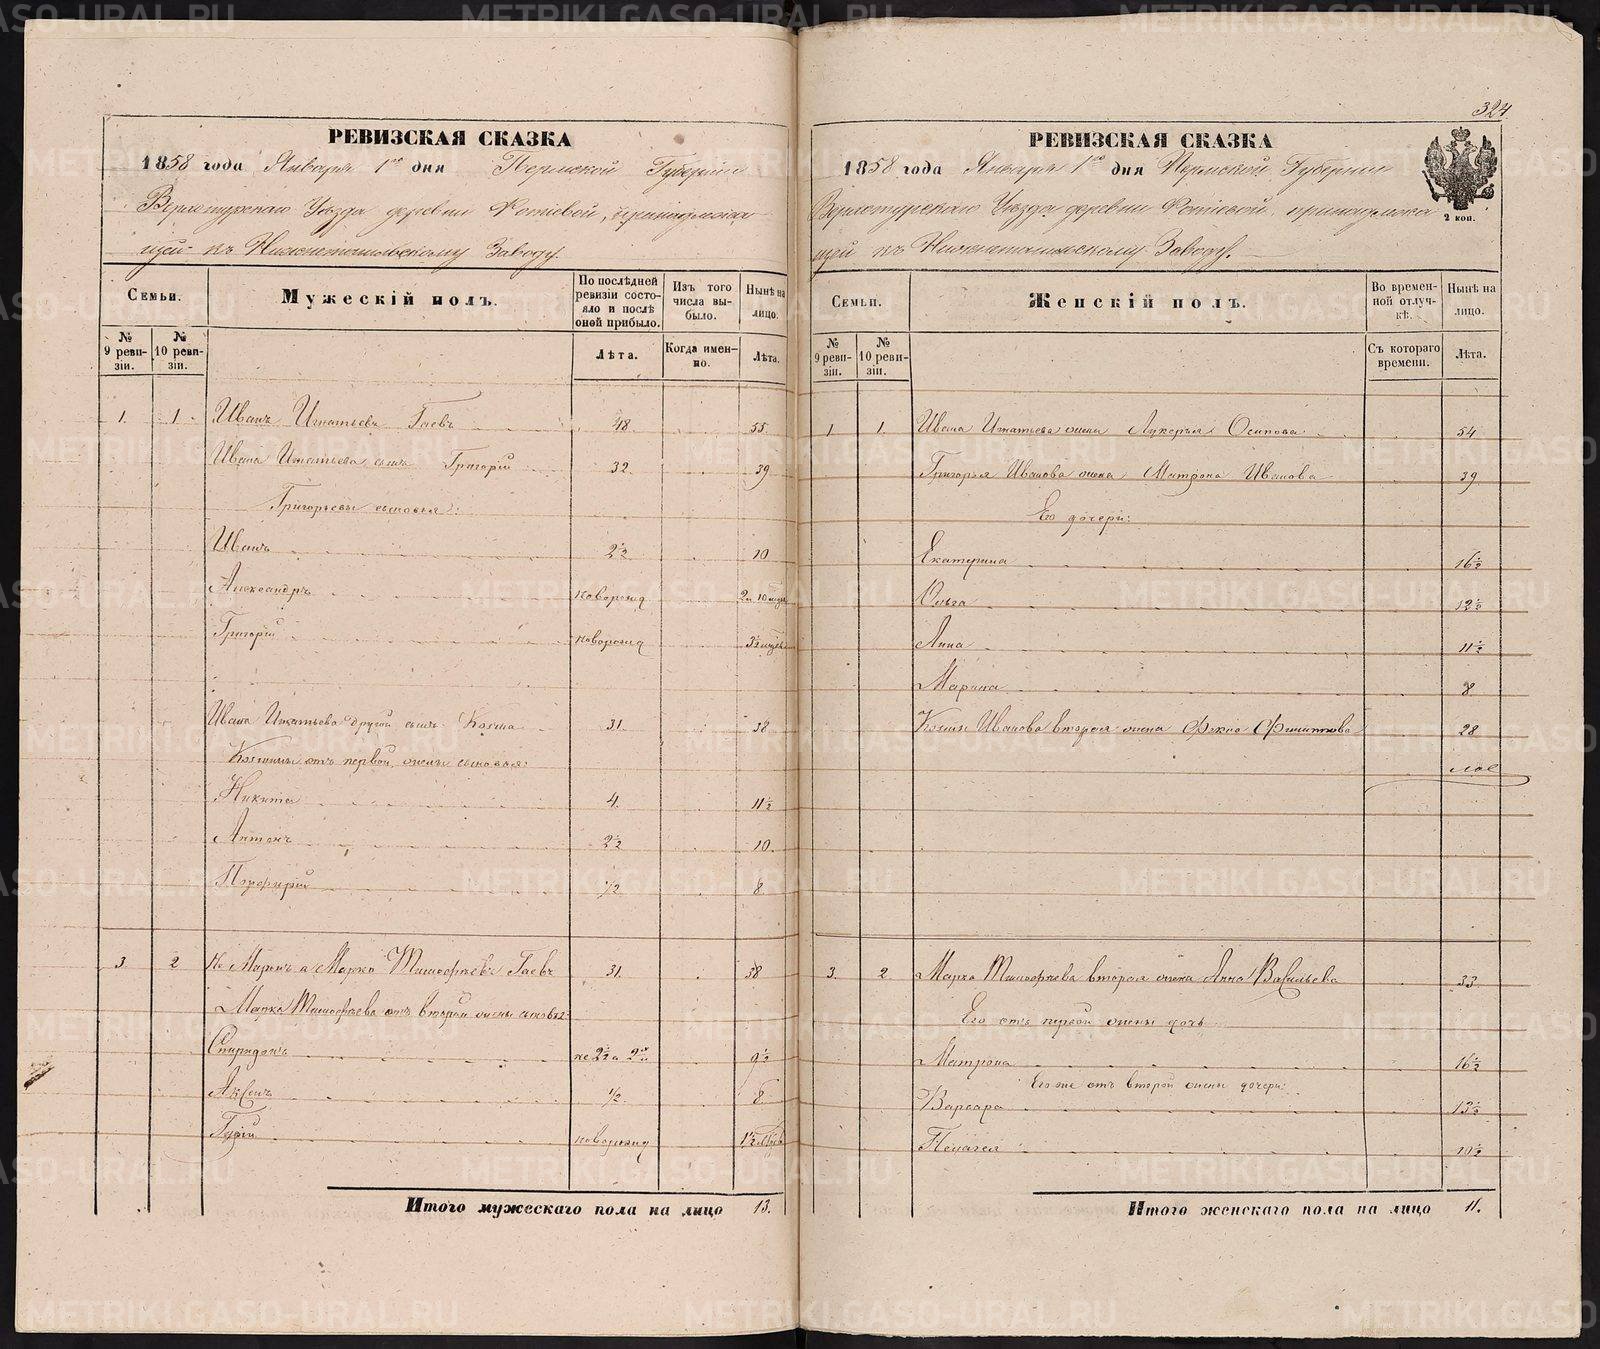 324
РЕВИЗСКАЯ СКАЗКА
1858 года Января 1го дня Пермской Губернии
Верхотурскаго Уѣзда деревни Фотіевой, принадлежа
щей къ Нижнетагильскому Заводу.
Семьи.
Мужескій полъ.
По послѣдней ревизіи состояло и послѣ оной прибыло.
Изъ того числа выбыло.
Нынѣ на лицо.
№ 9 ревизіи.
№ 10 ревизіи.
Лѣта.
Когда именно.
Лѣта.
1. 1. Иванъ Игнатьевъ Гаевъ 48 55
Ивана Игнатьева сынъ Григорій 32 39
Григорьевы сыновья:
Иванъ 2½ 10
Александръ новорожд 2 10 мѣс
Григорій новорожд 3½ мѣс
Ивана Игнатьева другой сынъ Козма 31. 38
Козмины отъ первой жены сыновья:
Никита 4. 11½
Антонъ 2½ 10.
Порфирій ½ 8
3 2 Маркъ Тимофѣевъ Гаевъ 31. 38
Марка Тимофѣева отъ второй жены сыновья:
Спиридонъ 2½ 9½
Аксенъ ½ 8
новорожд 1½
Итого мужескаго пола на лицо 13.
РЕВИЗСКАЯ СКАЗКА
1858 года Января 1го дня Пермской Губерніи
2 коп.
Верхотурскаго Уѣзда деревни Фотіевой принадлежа
щей къ Нижнетагильскому Заводу.
Семьи.
Женскій полъ.
Во временной отлучкѣ.
Нынѣ на лицо.
№ 9 ревизіи.
№ 10 ревизіи.
Съ котораго времени.
Лѣта.
1 1. Ивана Игнатьева жена Лукерья Осипова 54
Григорья Иванова жена Матрона Иванова 39
Его дочери:
Екатерина 16½
Ольга 12½
Анна 11½
Марина 8
Козмы Иванова вторая жена Фекла Филиппова 28
3. 2 Марка Тимофѣева вторая жена Анна Васильева 33
Его отъ первой жены дочь
Матрона 16½
Его же отъ второй жены дочери:
Варвара 13½
Пелагея 10½
Итого женскаго пола на лицо 11.
METRIKI.GASO-URAL.RU